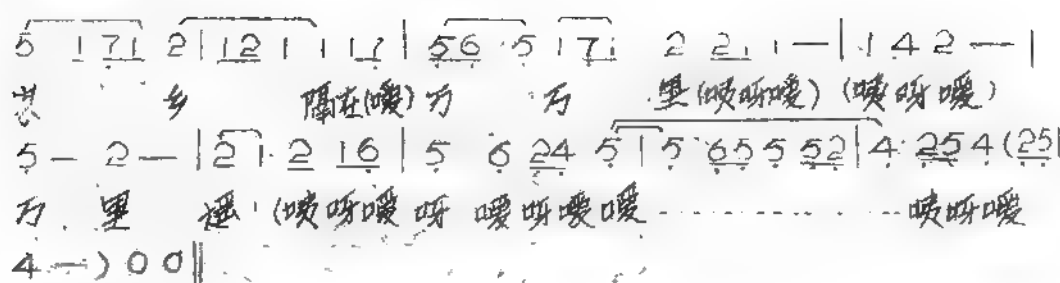 5 1 7 1 2 | 1 2 1 1 1 7 | 5 6 5 1 7 2 2 1 1 — | 1 4 2 — |
乡 隔在(嗳)万 万 里(唉呀嗳)(唉呀嗳)
5 — 2 — | 2 1 2 1 6 | 5 6 2 4 5 | 5 6 5 5 5 2 | 4 2 5 4 (2 5 |
万 里 遥 (唉呀嗳 呀 嗳呀嗳嗳 - - - - - - - - - - 唉呀嗳
4 — ) 0 0 ‖